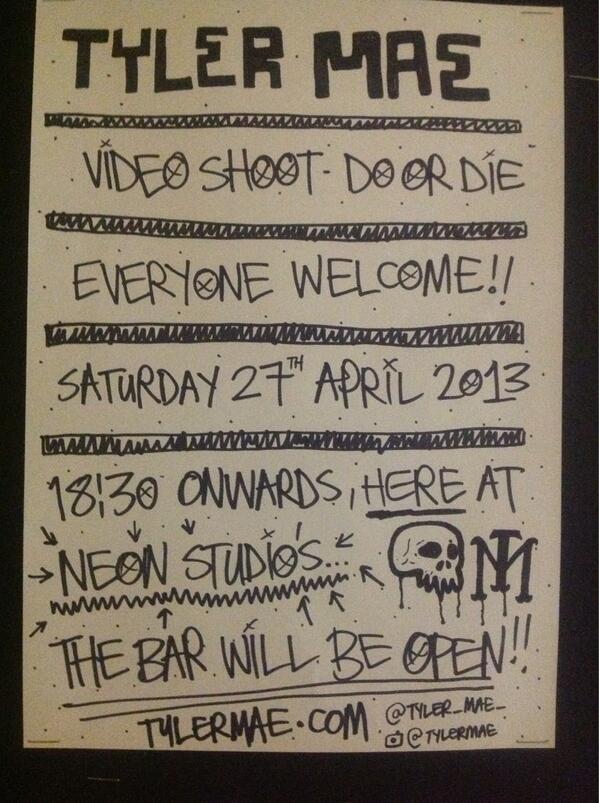 TYLER MAE
VIDEO SHOOT - DO OR DIE
EVERYONE WELCOME!!
SATURDAY 27TH APRIL 2013
18:30 ONWARDS, HERE AT
NEON STUDIOS...
TM
THE BAR WILL BE OPEN!!
TYLERMAE.COM
@TYLER_MAE_
@TYLERMAE